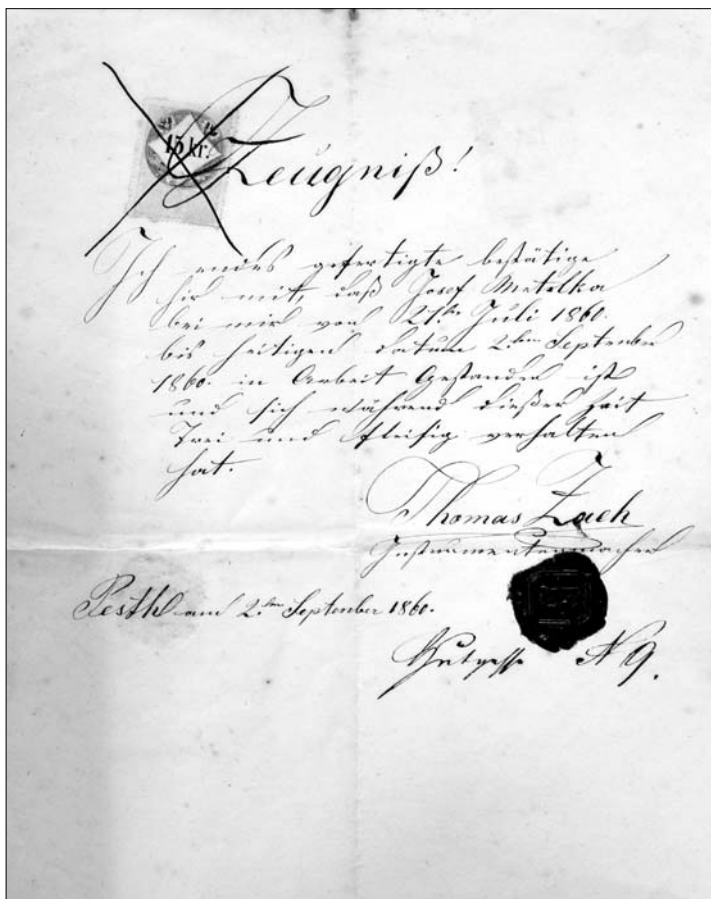 15 kr.
Zeugniß!
Ich endes gefertigte bestätige
hir mit, daß Josef Metelka
bei mir von 21ten Juli 1860.
bis heitigen datum 2ten September
1860. in Arbeit Gestanden ist
und sich während dießer Zeit
Trei und fleisig verhalten
hat.
Thomas Zach
Instrumentenmacher
Pesth am 2ten September 1860.
Hutgasse N 9.